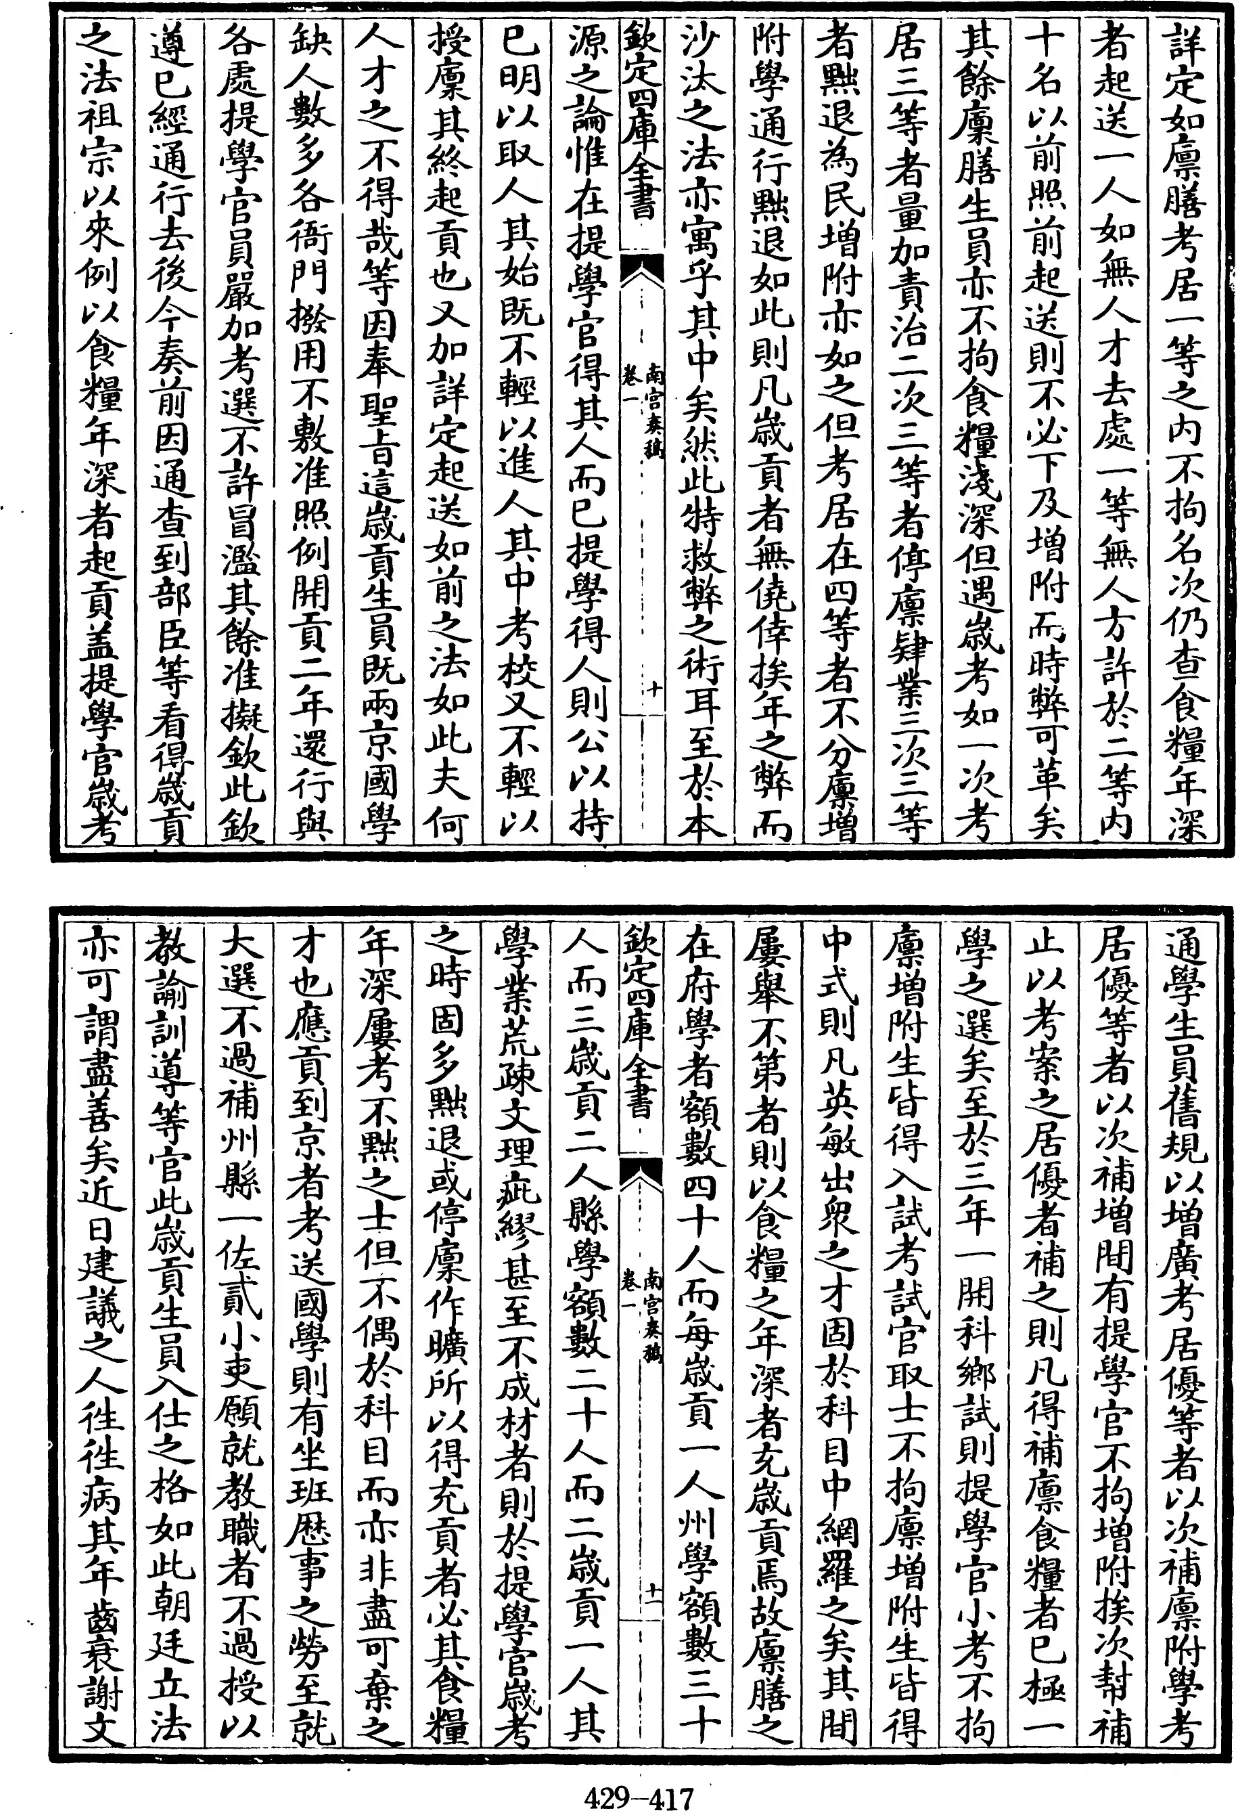 詳定如廩膳考居一等之内不拘名次仍查食糧年深
者起送一人如無人才去處一等無人方許於二等内
十名以前照前起送則不必下及增附而時弊可革矣
其餘廩膳生員亦不拘食糧淺深但遇歲考如一次考
居三等者量加責治二次三等者停廩肄業三次三等
者黜退為民增附亦如之但考居在四等者不分廩增
附學通行黜退如此則凡歲貢者無僥倖挨年之弊而
沙汰之法亦寓乎其中矣然此特救弊之術耳至於本
欽定四庫全書
南宫奏稿
卷一
十
源之論惟在提學官得其人而已提學得人則公以持
已明以取人其始既不輕以進人其中考校又不輕以
授廩其終起貢也又加詳定起送如前之法如此夫何
人才之不得哉等因奉聖旨這歲貢生員既兩京國學
缺人數多各衙門撥用不敷准照例開貢二年還行與
各處提學官員嚴加考選不許冒濫其餘准擬欽此欽
遵已經通行去後今奏前因通查到部臣等看得歲貢
之法祖宗以來例以食糧年深者起貢盖提學官歲考
通學生員舊規以增廣考居優等者以次補廩附學考
居優等者以次補增間有提學官不拘增附挨次幇補
止以考案之居優者補之則凡得補廩食糧者已極一
學之選矣至於三年一開科鄉試則提學官小考不拘
廩增附生皆得入試考試官取士不拘廩增附生皆得
中式則凡英敏出衆之才固於科目中網羅之矣其間
屢舉不第者則以食糧之年深者充歲貢焉故廩膳之
在府學者額數四十人而每歲貢一人州學額數三十
欽定四庫全書
南宫奏稿
卷一
十一
人而三歲貢二人縣學額數二十人而二歲貢一人其
學業荒疎文理疵繆甚至不成材者則於提學官歲考
之時固多黜退或停廩作曠所以得充貢者必其食糧
年深屢考不黜之士但不偶於科目而亦非盡可棄之
才也應貢到京者考送國學則有坐班歷事之勞至就
大選不過補州縣一佐貳小吏願就教職者不過授以
教諭訓導等官此歲貢生員入仕之格如此朝廷立法
亦可謂盡善矣近日建議之人徃徃病其年齒衰謝文
429-417